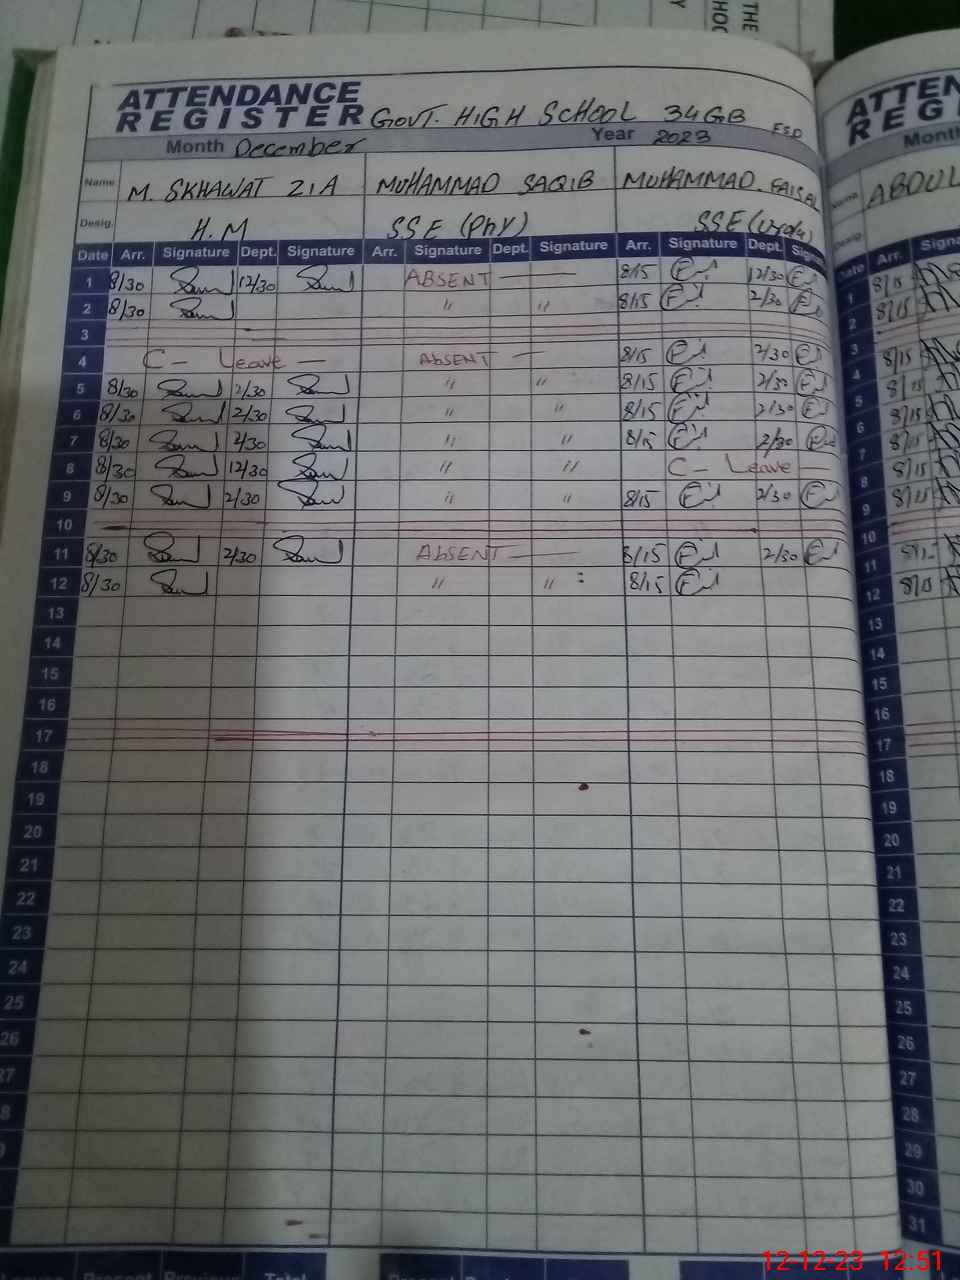 THE
HOO
Y
ATTENDANCE
REGISTER GOVT. HIGH SCHOOL 34GB FSD
Month December Year 2023
Name M. SKHAWAT ZIA MUHAMMAD SAQIB MUHAMMAD FAISAL
Desig. H.M SSE (Phy) SSE (Urdu)
Date Arr. Signature Dept. Signature Arr. Signature Dept. Signature Arr. Signature Dept. Signa
1 8/30 12/30 ABSENT — 8/15 12/30
2 8/30 〃 〃 8/15 2/30
3
4 C - Leave — ABSENT — 8/15 2/30
5 8/30 2/30 〃 〃 8/15 2/30
6 8/30 2/30 〃 〃 8/15 2/30
7 8/30 2/30 〃 〃 8/15 2/30
8 8/30 12/30 〃 〃 C - Leave —
9 8/30 2/30 〃 〃 8/15 2/30
10
11 8/30 2/30 ABSENT — 8/15 2/30
12 8/30 〃 〃 : 8/15
13
14
15
16
17
18
19
20
21
22
23
24
25
26
27
8
ATTEN
REG
Month
Name ABDUL
Desig
Date Arr. Signa
1 8/15
2 8/15
3
4 8/15
5 8/15
6 8/15
7 8/15
8 8/15
9 8/15
10
11
12 8/15
13
14
15
16
17
18
19
20
21
22
23
24
25
26
27
28
29
30
31
Present Previous Total
12-12-23 12:51